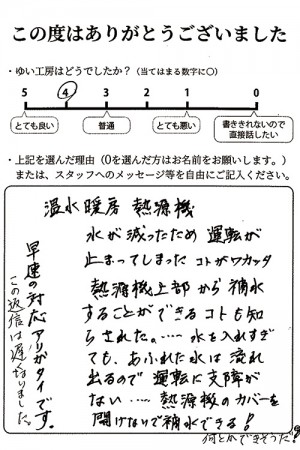 この度はありがとうございました
・ゆい工房はどうでしたか？（当てはまる数字に○）
5 4 3 2 1 0
とても良い 普通 とても悪い 書ききれないので直接話したい
・上記を選んだ理由（0を選んだ方はお名前をお願いします。）
または、スタッフへのメッセージ等を自由にご記入ください。
温水暖房 熱源機
水が減ったため 運転が
止まってしまった コトがワカッタ
熱源機上部から補水
することができるコトも知
らされた。…… 水を入れすぎ
ても、あふれた水は 流れ
出るので 運転に支障が
ない…… 熱源機のカバーを
開けないで補水できる！
何とかできそうだ！
早速の対応アリガタイです。
この返信は遅くなりました。